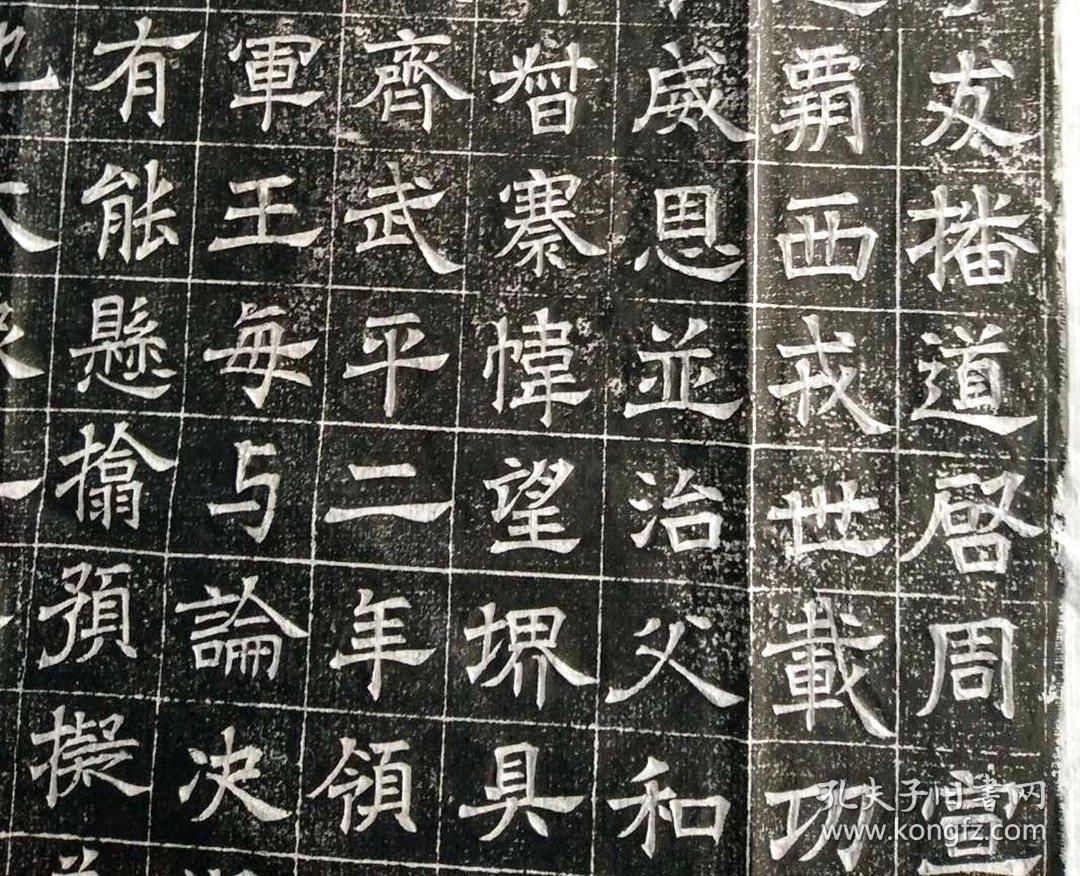 犮播道啓周宣
霸西戎世載功
威恩並治父和
褰幃望堺具
齊武平二年領
軍王每与論决
有能懸擒預擬
孔夫子旧书网
www.kongfz.com